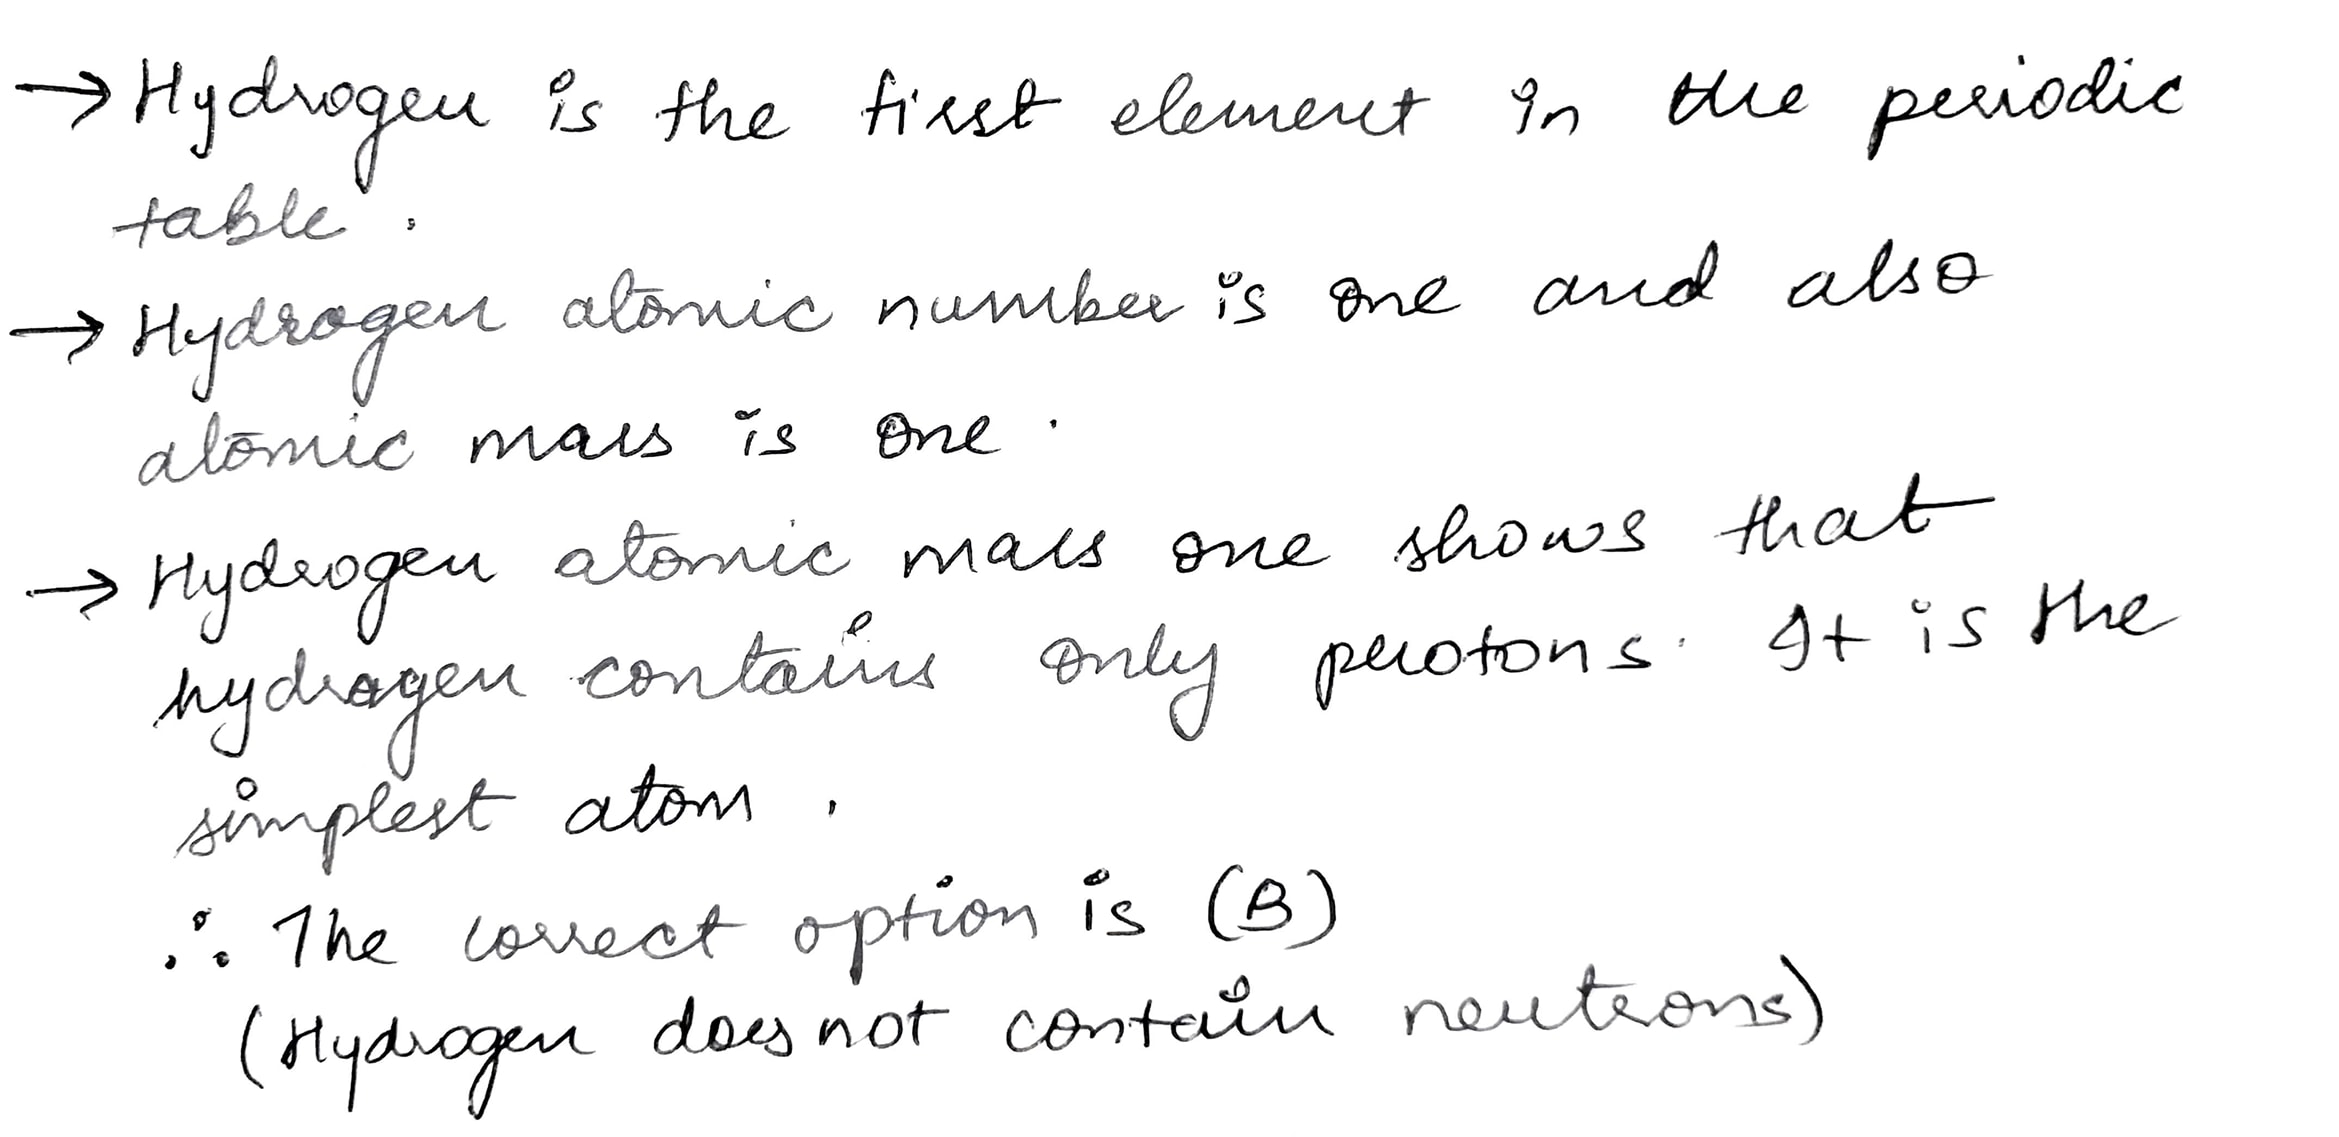 → Hydrogen is the first element in the periodic
table.
→ Hydrogen atomic number is one and also
atomic mass is one.
→ Hydrogen atomic mass one shows that
hydrogen contains only protons. It is the
simplest atom.
∴ The correct option is (B)
(Hydrogen does not contain neutrons)